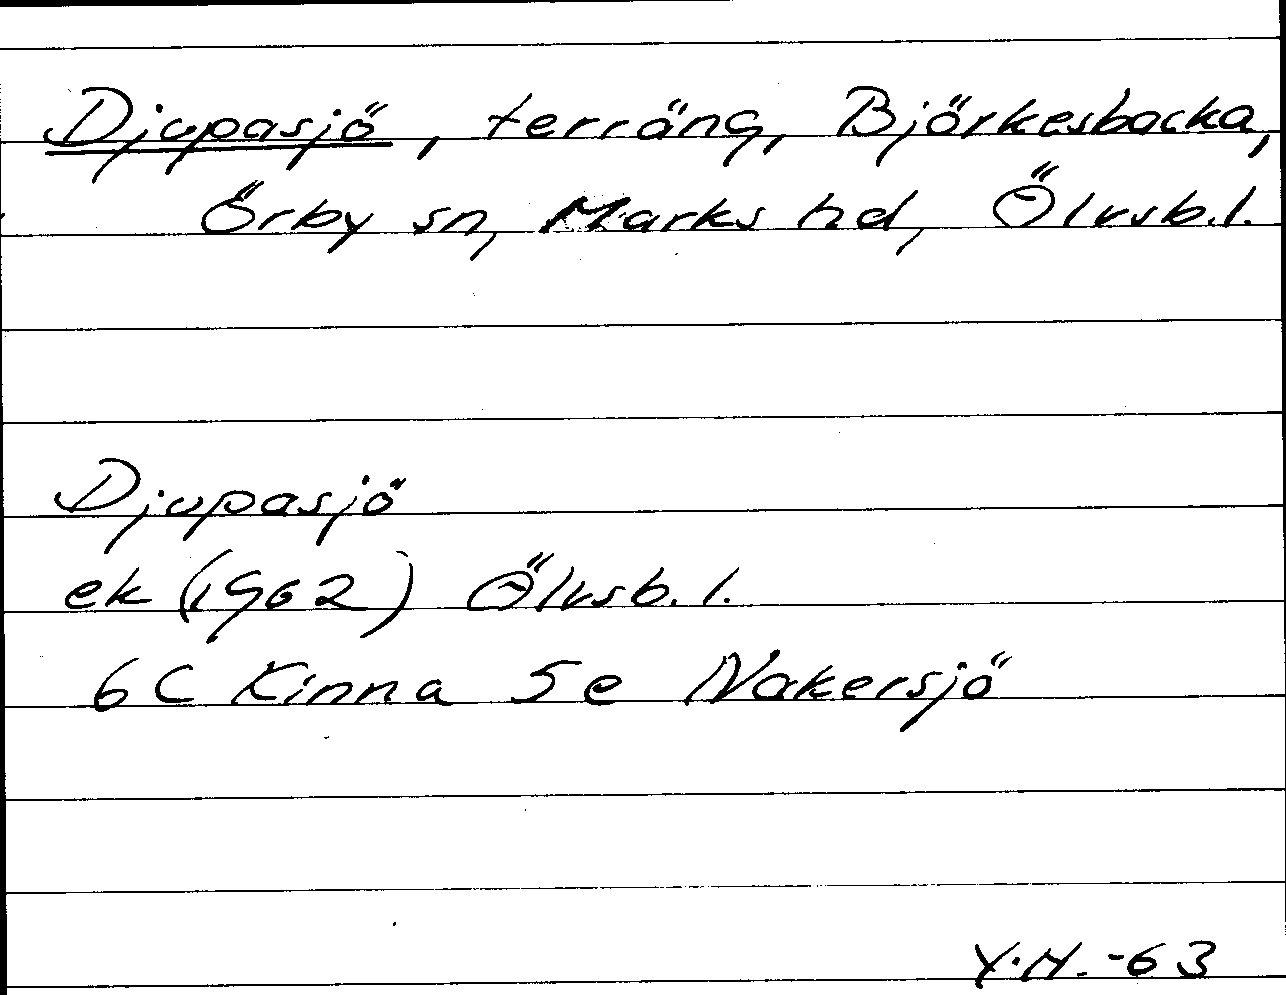 Djupasjö, terräng, Björkesbacka,
Örby sn, Marks hd, Älvsb.l.
Djupasjö
ek (1962) Älvsb.l.
6C Kinna 5e Nakersjö
Y.H.-63